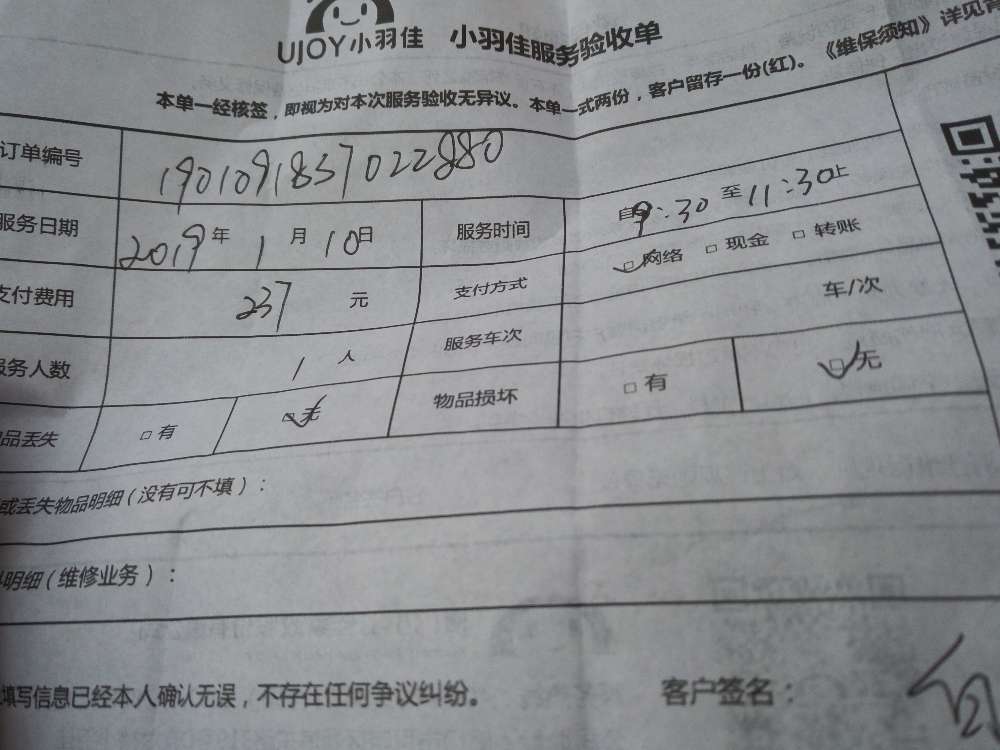 UJOY小羽佳 小羽佳服务验收单
本单一经核签，即视为对本次服务验收无异议。本单一式两份，客户留存一份(红)。《维保须知》详见背
订单编号 190109183702​2880
服务日期 2019年1月10日 服务时间 自9:30至11:30止
支付费用 237元 支付方式 □网络 □现金 □转账
服务人数 1人 服务车次 车/次
品丢失 □有 □无 物品损坏 □有 □无
或丢失物品明细（没有可不填）：
明细（维修业务）：
填写信息已经本人确认无误，不存在任何争议纠纷。 客户签名：